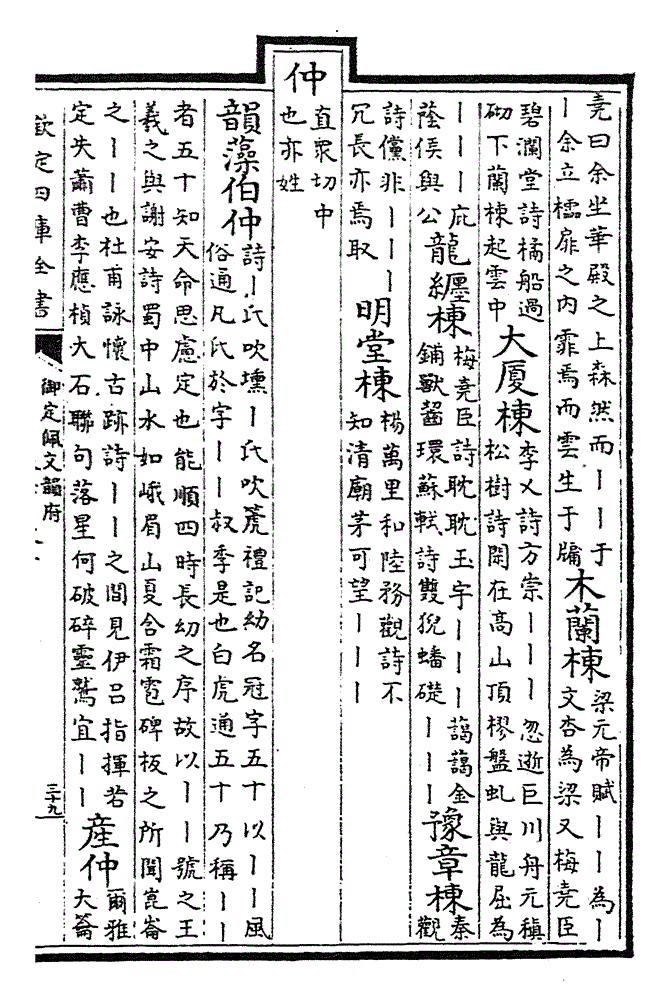 堯曰余坐華殿之上森然而丨丨于
丨余立櫺扉之内霏焉而雲生于牖
木蘭棟
梁元帝賦丨丨為丨
文杏為梁又梅堯臣
碧瀾堂詩橘船過
砌下蘭棟起雲中
大厦棟
李乂詩方崇丨丨丨忽逝巨川舟元稹
松樹詩閑在高山頂樛盤虬與龍屈為
丨丨丨庇
蔭侯與公
龍纒棟
梅堯臣詩耽耽玉宇丨丨丨藹藹金
鋪獸齧環蘇軾詩雙猊蟠礎丨丨丨
豫章棟
秦
觀
詩儻非丨丨丨
冗長亦焉取
明堂棟
楊萬里和陸務觀詩不
知清廟茅可望丨丨丨
仲
直衆切中
也亦姓
韻藻伯仲
詩丨氏吹壎丨氏吹篪禮記幼名冠字五十以丨丨風
俗通凡氏於字丨丨叔季是也白虎通五十乃稱丨丨
者五十知天命思慮定也能順四時長幼之序故以丨丨號之王
羲之與謝安詩蜀中山水如峨眉山夏含霜雹碑板之所聞崑崙
之丨丨也杜甫詠懷古跡詩丨丨之間見伊吕指揮若
定失蕭曹李應楨大石聯句落星何破碎靈鷲宜丨丨
産仲
爾雅
大籥
欽定四庫全書
御定佩文韻府
三十九